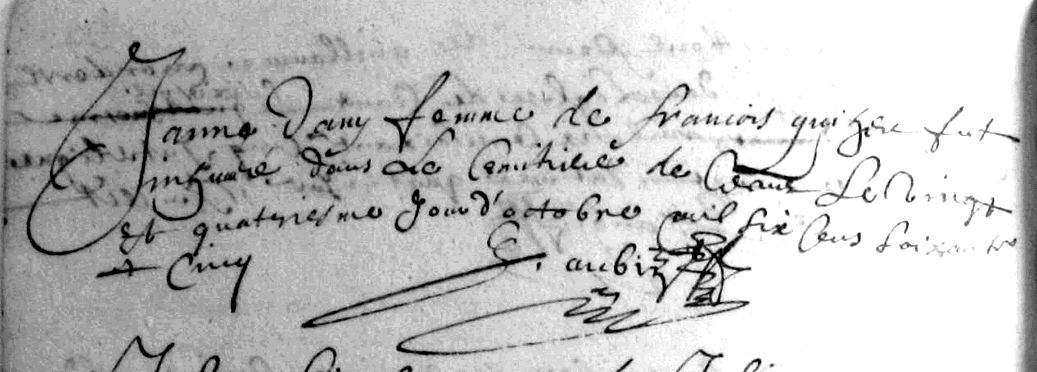 Janne Dany femme de francois guihée fut
inhumé dans Le Cemitiere de Ceaux Le vingt
et quatriesme Jour d'octobre mil six Cens soixante
et Cinq
aubin